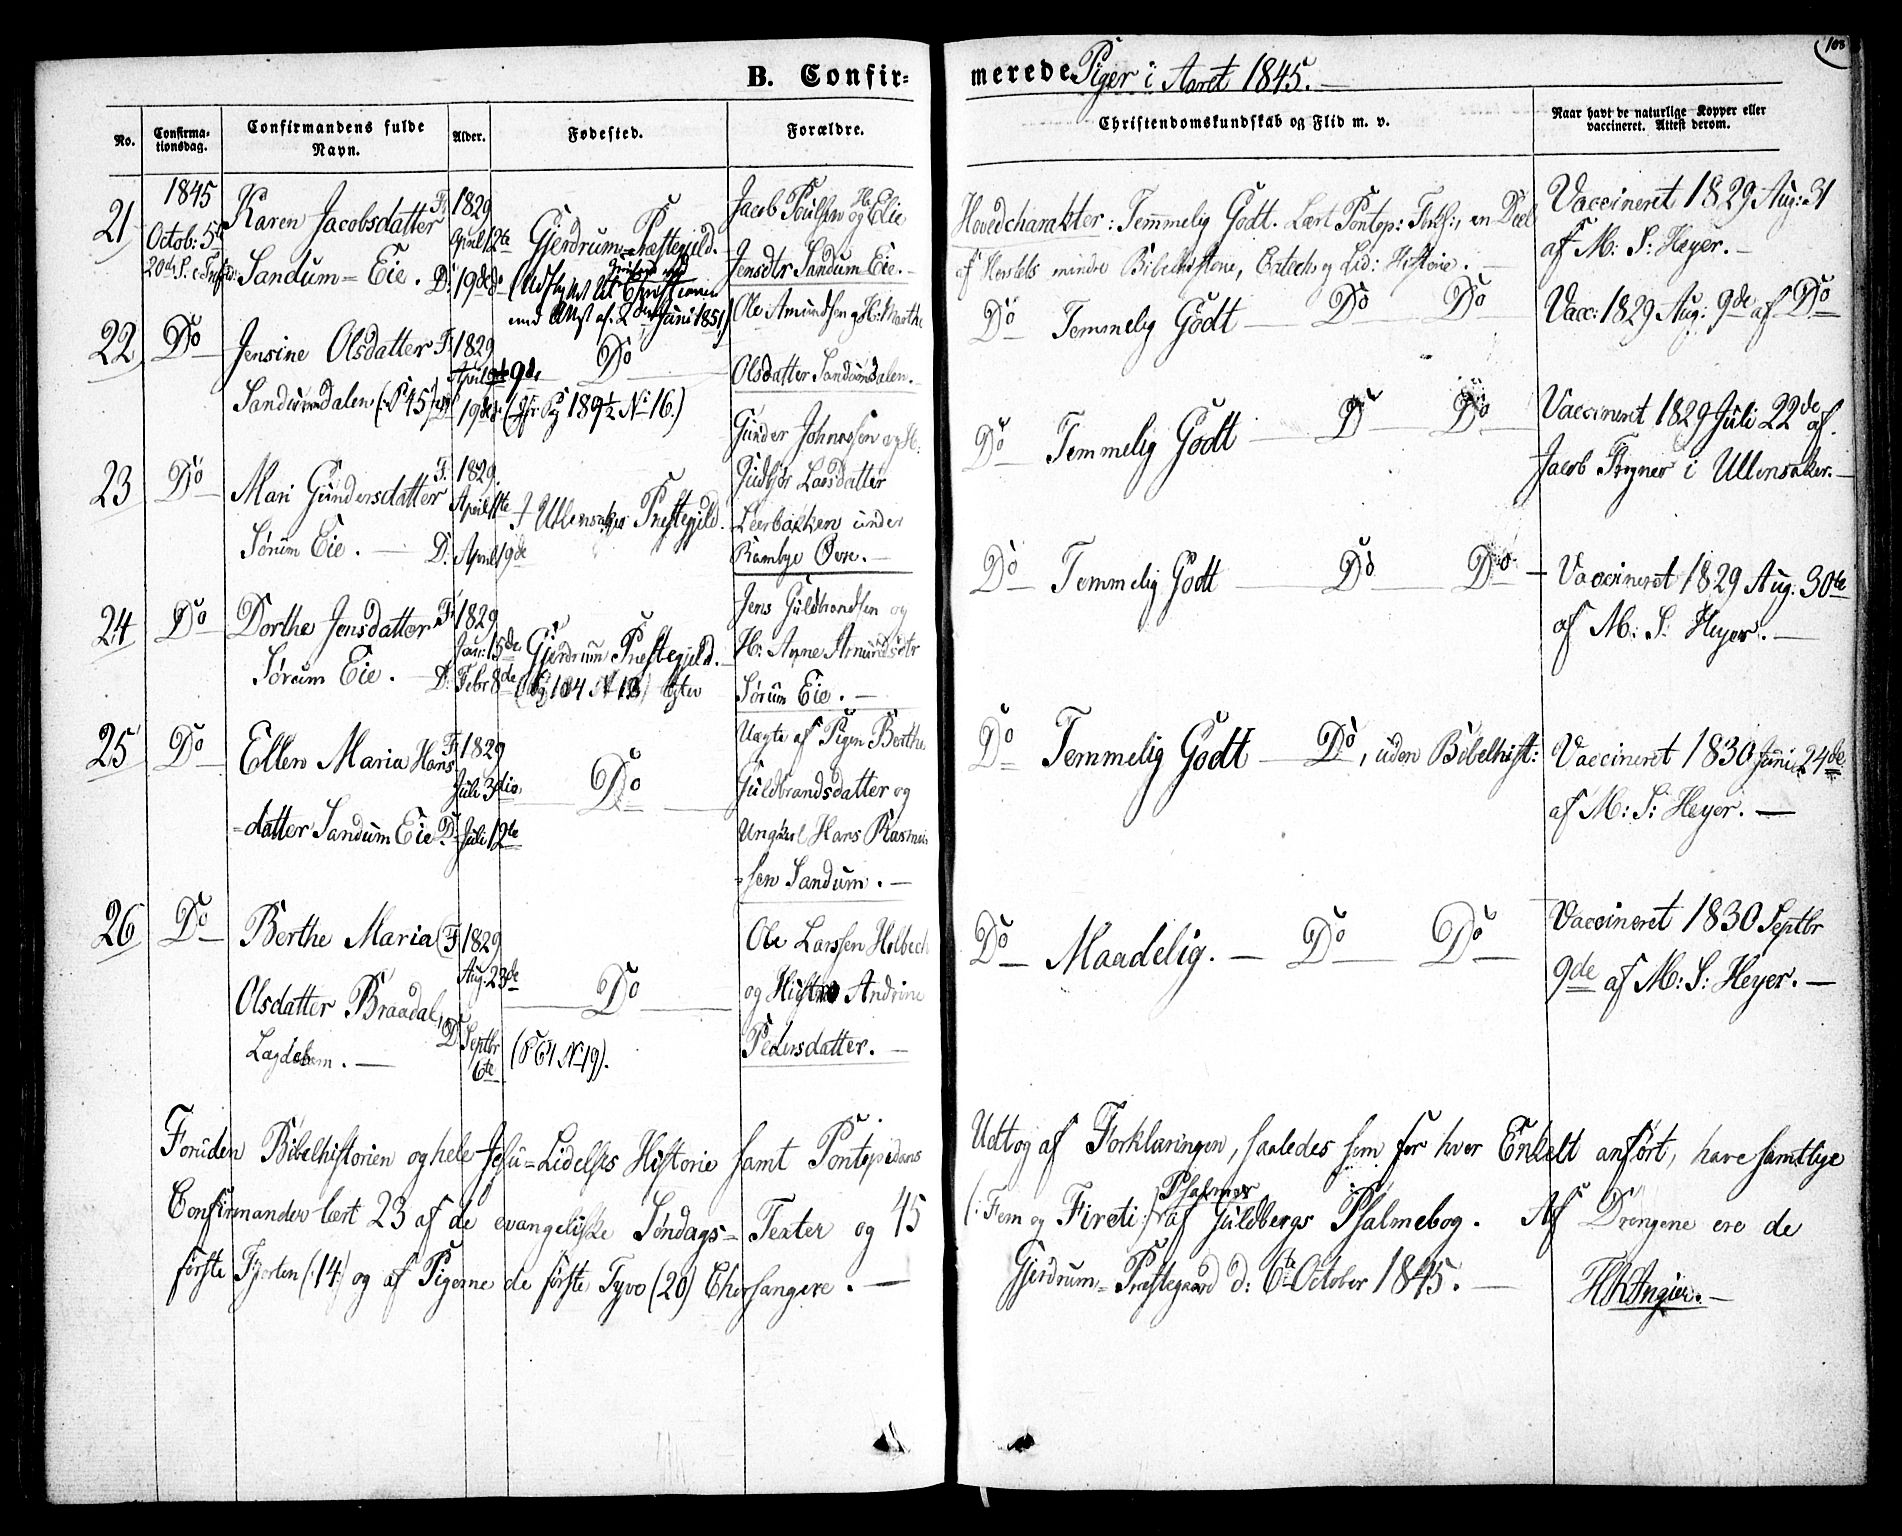 108
B. Confir=
merede Piger i Aaret 1845.
No.
Confirma-
tionsdag.
Confirmandens fulde
Navn.
Alder.
Fødested.
Forældre.
Christendomskundskab og Flid m. v.
Naar havt de naturlige Kopper eller
vaccineret. Attest derom.
21
1845
Octob: 5te
20de S. e. Tref:
Karen Jacobsdatter
Sandum= Eie.
F. 1829
April 12te
D. 19de
Gjerdrums Præstegjeld.
med Attest af. 2den Juni 1851)
Jacob Poulsen og H. Elie
Jensdtr Sandum Eie.
Hovedcharakter: Temmelig Godt. Lært Pontop: Forkl:, en Deel
af Herslebs mindre Bibelhistorie, Cateck: og Lid: Historie.
Vaccineret 1829 Aug: 31
af M: S: Heyer.
22
Do
Jensine Olsdatter
Sandumdalen
F. 1829
April 9de
D. 19de
Do
(cfr Pg 189½ No 16.)
Ole Amundsen og H: Marthe
Olsdatter Sandumdalen.
Do Temmelig Godt Do Do
Vacc: 1829 Aug: 9de af Do
23
Do
Mari Gundersdatter
Sørum Eie.
F. 1829.
April
D. April 19de
I Ullensaker Præstegjeld.
Gunder Johnssen og H:
Larsdatter
Leerbakken under
Rambye Øvre.
Do Temmelig Godt Do Do
Vaccineret 1829 Juli 22de af
Jacob Frogner i Ullensaker.
24
Do
Dorthe Jensdatter
Sørum Eie.
F. 1829
Jan: 15de
D. Febr 8de
Gjerdrum Præstegjeld.
Jens Guldbrandsen og
H: Anne Amundsdtr
Sørum Eie.
Do Temmelig Godt Do Do
Vaccineret 1829 Aug: 30te
af M: S: Heyer.
25
Do
Ellen Maria Hans
=datter Sandum Eie
F. 1829
Juli 3die
D. Juli 12te
Do
Uægte af Pigen Berthe
Guldbrandsdatter og
Ungkarl Hans Rasmus
=sen Sandum.
Do Temmelig Godt Do, uden Bibelhist:
Vaccineret 1830 Junii 24de
af M: S: Heyer.
26
Do
Berthe Maria
Olsdatter Braadal,
Lægdebarn.
F. 1829
Aug: 23de
D. Septbr
6te
Do
(P 61 N 19).
Ole Larssen Holbech
og Hustro Andrine
Pedersdatter.
Do Maadelig. Do Do
Vaccineret 1830 Septbr
9de af M: S: Heyer.
Foruden Bibelhistorien og hele Jesu=Lidelses Historie samt Pontopidans Udtog af Forklaringen, saaledes som for hver Enkelt anført, have samtlige
Confirmander lært 23 af de evangeliske Søndags= Texter og 45 (: Fem og Fireti :) Psalmer af Guldbergs Psalmebog. Af Drengene ere de
første Fjorten (:14:) og af Pigerne de første Tyve (20) Chorsangere.
Gjerdrum= Præstegaard d: 6te October 1845.
H Angier.